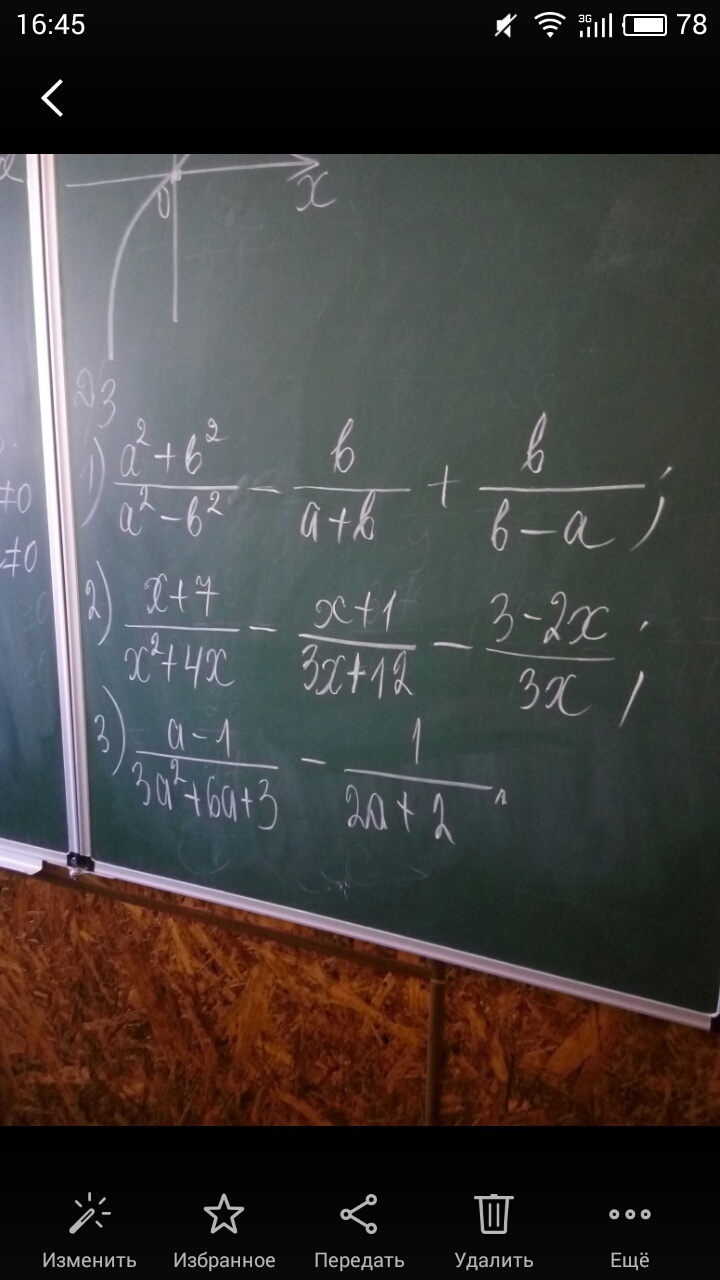 16:45 3G 78
x
0
ДЗ
1) (a² + b²)/(a² - b²) - b/(a+b) + b/(b-a);
≠0
≠0
2) (x+7)/(x²+4x) - (x+1)/(3x+12) - (3-2x)/(3x);
3) (a-1)/(3a²+6a+3) - 1/(2a+2).
Изменить Избранное Передать Удалить Ещё